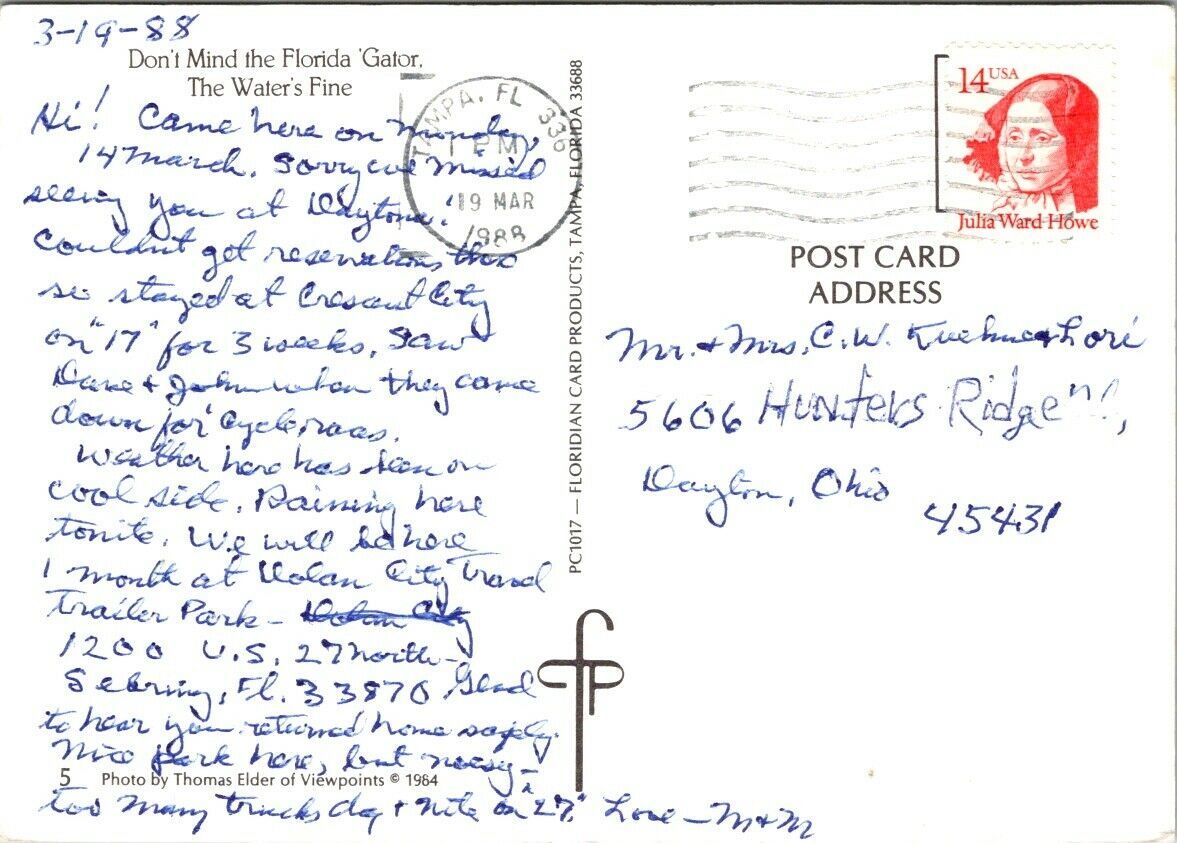 3-19-88
Don't Mind the Florida 'Gator,
The Water's Fine
Hi! Came here on Monday,
14 March. Sorry we missed
seeing you at Daytona.
Couldn't get reservations there
so stayed at Cresant City
on "17" for 3 weeks. Saw
Dave + John when they came
down for cycle races.
Weather here has been on
cool side. Raining here
tonite. We will be here
1 month at City Travel
Trailer Park -
1200 U.S. 27 North -
Sebring, Fl. 33870 Glad
to hear you returned home safely.
Nice park here, but noisy -
5 Photo by Thomas Elder of Viewpoints © 1984
too many trucks day + nite on "27." Love - M + M
PC1017 — FLORIDIAN CARD PRODUCTS, TAMPA, FLORIDA 33688
TAMPA, FL 336
PM
19 MAR
1988
14 USA
Julia Ward Howe
POST CARD
ADDRESS
Mr. + Mrs. C.W. Kuehne + Lori
5606 Hunters Ridge
Dayton, Ohio
45431